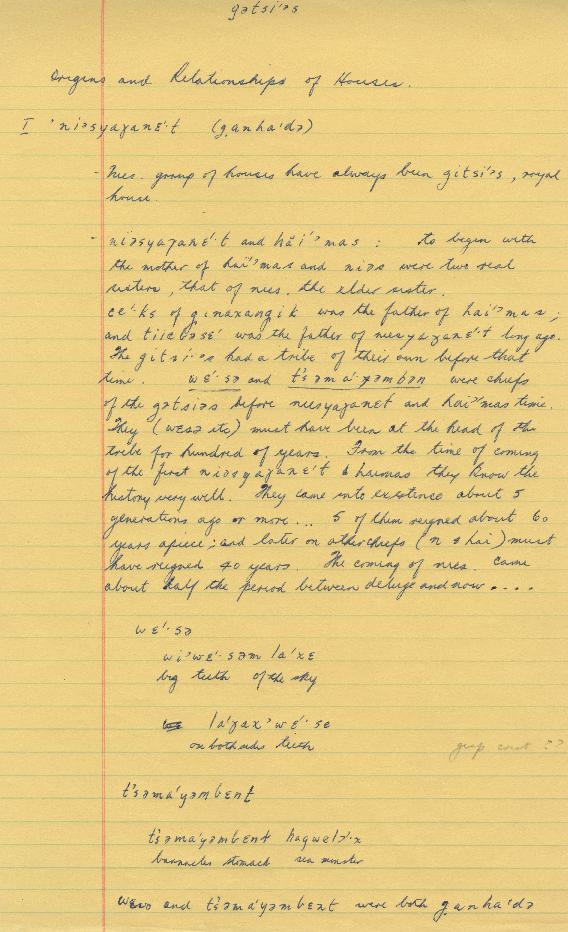 gətsi'ᵊs
Origins and Relationships of Houses.
I 'niəsyaɣanɛ't (g̣anha'də)
- Nies. group of houses have always been gitsi'ᵊs, royal
house.
- niəsyaɣanɛ'·t and hai'ᵓmas : to begin with
the mother of hai'ᵓmas and niəs were two real
sisters, that of nies. the elder sister.
cɛ'·ks of ginaxangik was the father of hai'ᵓmas;
and was the father of niesyaɣanɛ'·t long ago.
The gitsi·ᵊs had a tribe of their own before that
time. wɛ'·sə and t'səma'·yəmbən were chiefs
of the gətsiəs before niesyaɣanet and hai'ᵓmas time.
They (wesə etc) must have been at the head of the
tribe for hundred of years. From the time of coming
of the first niəsyaɣanɛ't & haimas they know the
history very well. They came into existence about 5
generations ago or more... 5 of them reigned about 60
years apiece; and later on other chiefs (n & hai) must
have reigned 40 years. The coming of nies. came
about half the period between deluge and now ....
wɛ'·sə
wiᵓwɛ'·səm la'xɛ
big teeth of the sky
la'ɣaxᵓwɛ'·sɛ
on both sides teeth
t'səma'yəmbɛnt
t'səma'yəmbɛnt hagwelɔ'·x
barnacles stomach sea monster
weso and t'səma'yəmbɛnt were both g̣anha'də